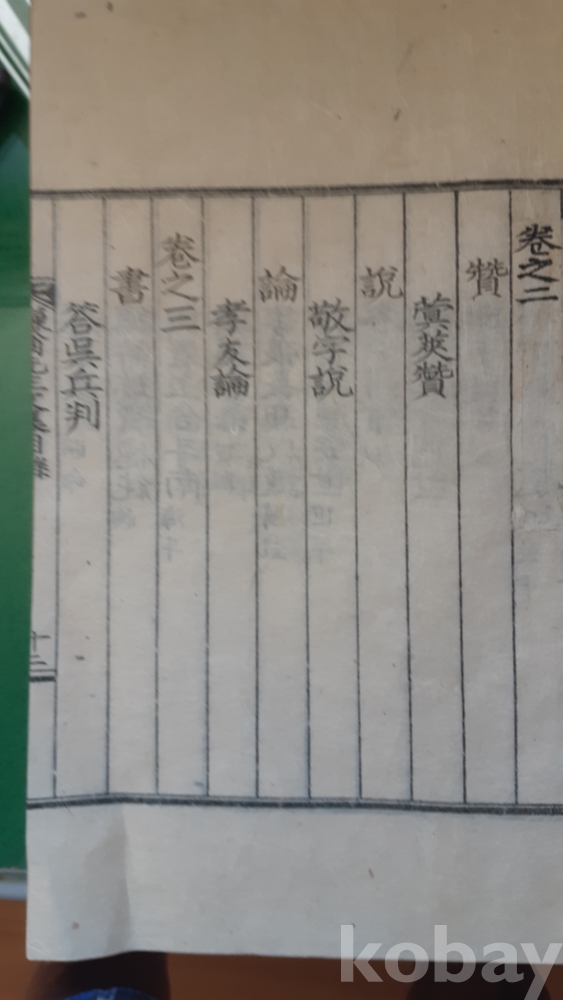 卷之二
贊
眞英贊
說
敬字說
論
孝友論
卷之三
書
答吳兵判
十二
kobay